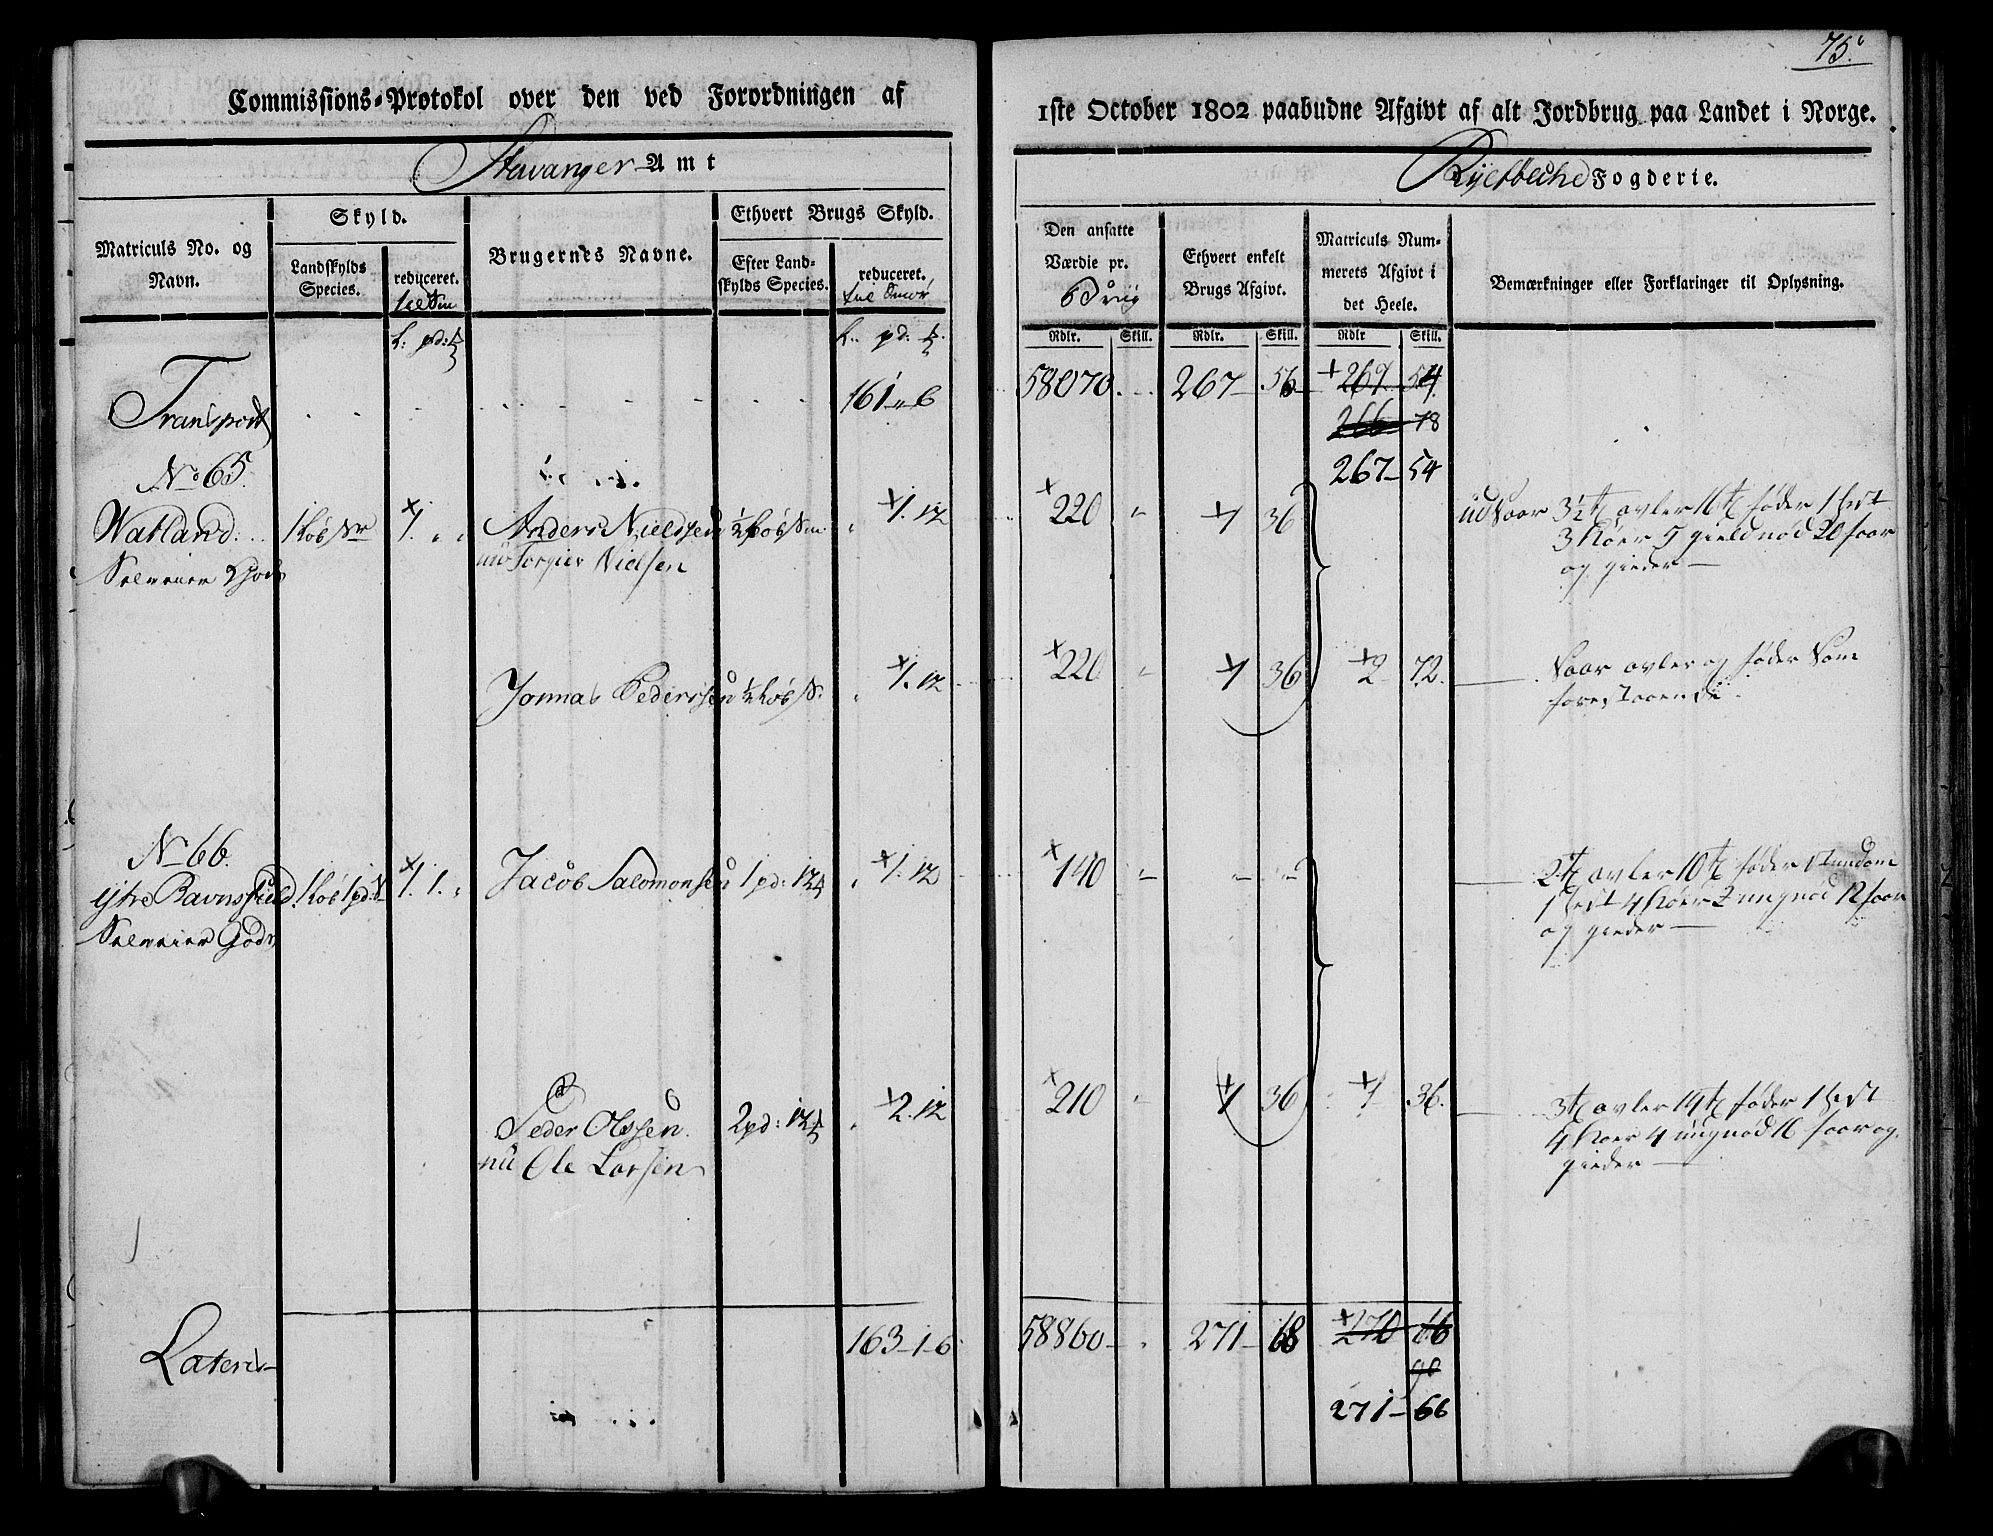 75.
Commissions-Protokol over den ved Forordningen af
1ste October 1802 paabudne Afgivt af alt Jordbrug paa Landet i Norge.
Stavanger Amt
Ryefylche Fogderie.
Matriculs No. og Navn.
Skyld.
Landskylds Species.
reduceret.
Brugernes Navne.
Ethvert Brugs Skyld.
Efter Landskylds Species.
reduceret. til Smør
Den ansatte Værdie pr.
Ethvert enkelt Brugs Afgivt.
Matriculs Nummerets Afgivt i det Heele.
Bemærkninger eller Forklaringer til Oplysning.
Rdlr. Skill. Rdlr. Skill. Rdlr Skill.
Transport 161 " 6 58070 267 56 269 54
266 78
267 54
No 65.
Watland 1 Køb Sr 1 " " Anders Nieldsen ½ Køb Sm " 1. 12 220 " 1 36 ud Saar 3½ t avler 16 t føder 1 Hest
Selveier Gods nu Torgier Nielsen 3 Kiøer 5 gieldnød 20 faar
og gieder
Jonnas Pedersen ½ Køb S. " 1. 12 220 " 1 36 2 72. Saar avler og føder som
forestaaende
No 66.
ytre Ravnsfield 1 Køb 1 pd S 1. 1. " Jacob Salomonsen 1 pd: 12 " 1. 12 140 " " " 2 t avler 10 t føder stundom
Selveier Gods 1 Hest 4 Kiøer 2 ungnød 12 faar
og gieder
Peder Olssen 2 pd: 12 " 2. 12 210 " 1 36 1 36. 3 t avler 14 t føder 1 Hest
nu Ole Larsen 4 Kiøer 4 ungnød 16 faar og
gieder
Lateris 163 1 6 58860 271 68 270 66
90
271 66